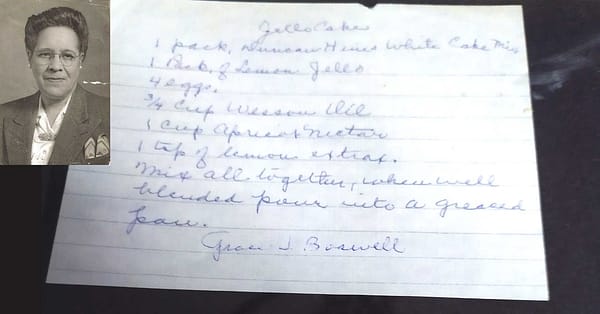 Jello Cake
1 pack, Duncan Hines White Cake Mix
1 Pack, of Lemon Jello
4 eggs.
3/4 Cup Wesson Oil
1 Cup Apricot Nectar
1 tsp of lemon extrac.
Mix all together, when well
blended pour into a greased
pan.
Grace J. Boswell